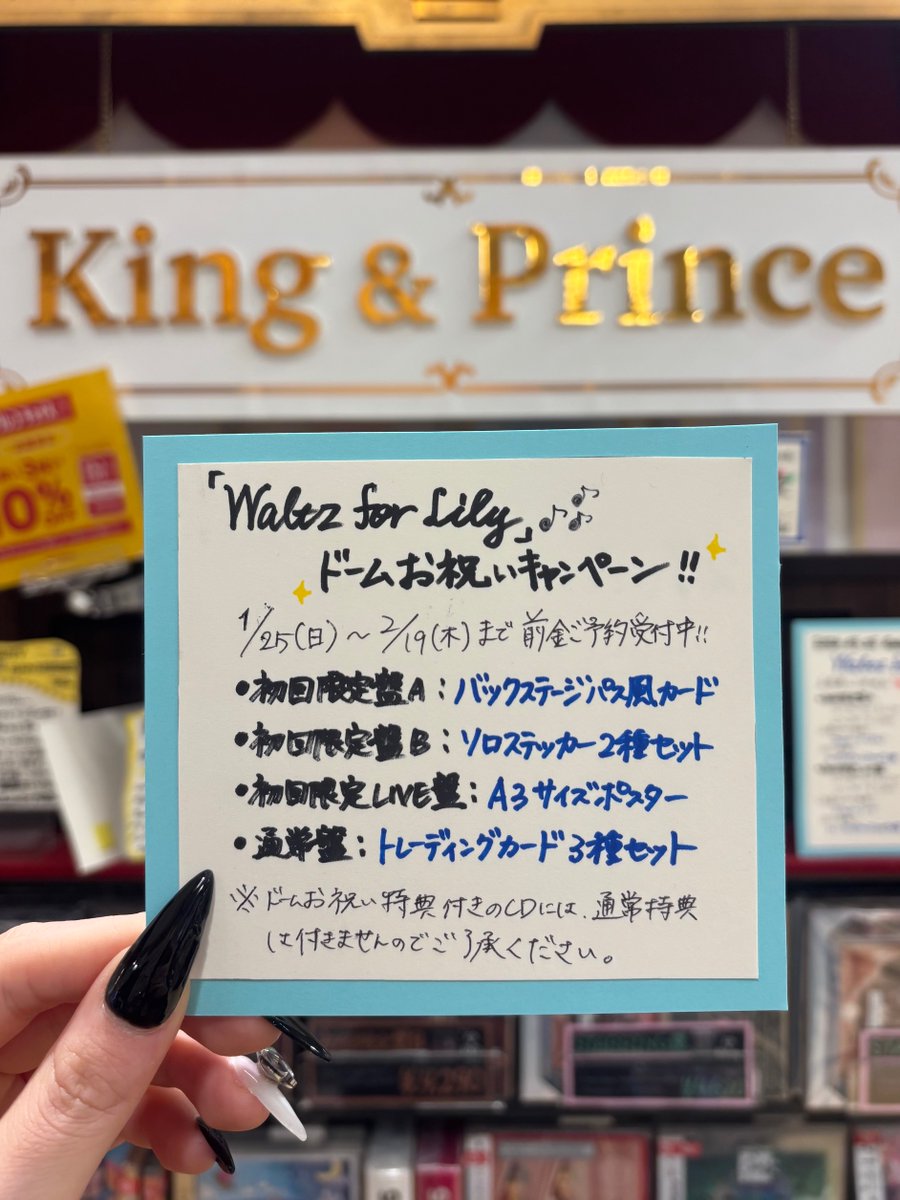 King & Prince
「Waltz for Lily」
ドームお祝いキャンペーン!!
1/25(日)～2/19(木)まで 前金ご予約受付中!!
•初回限定盤A:バックステージパス風カード
•初回限定盤B:ソロステッカー2種セット
•初回限定LIVE盤:A3サイズポスター
•通常盤:トレーディングカード3種セット
※ドームお祝い特典付きのCDには、通常特典
は付きませんのでご了承ください。